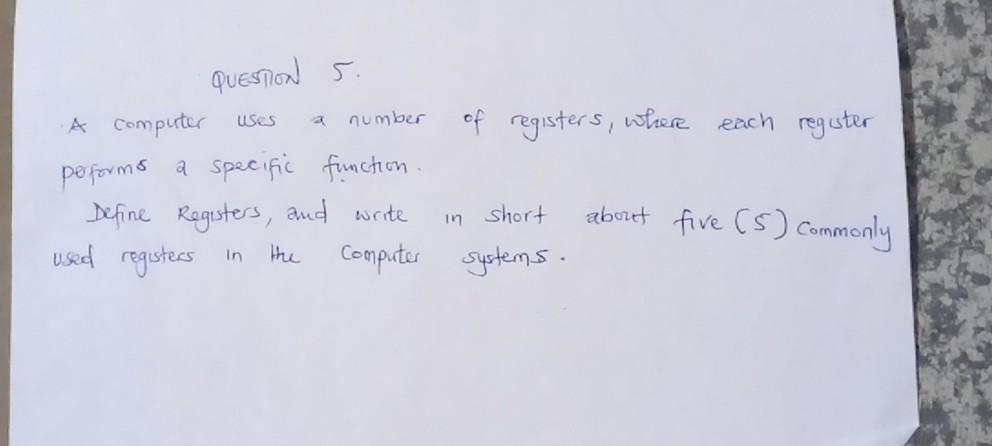 QUESTION 5.
A computer uses a number of registers, where each register
peforms a specific function.
Define Registers, and write in short about five (5) commonly
used registers in the computer systems.